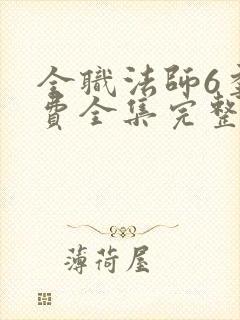 全職法師6
費全集完整
薄荷屋